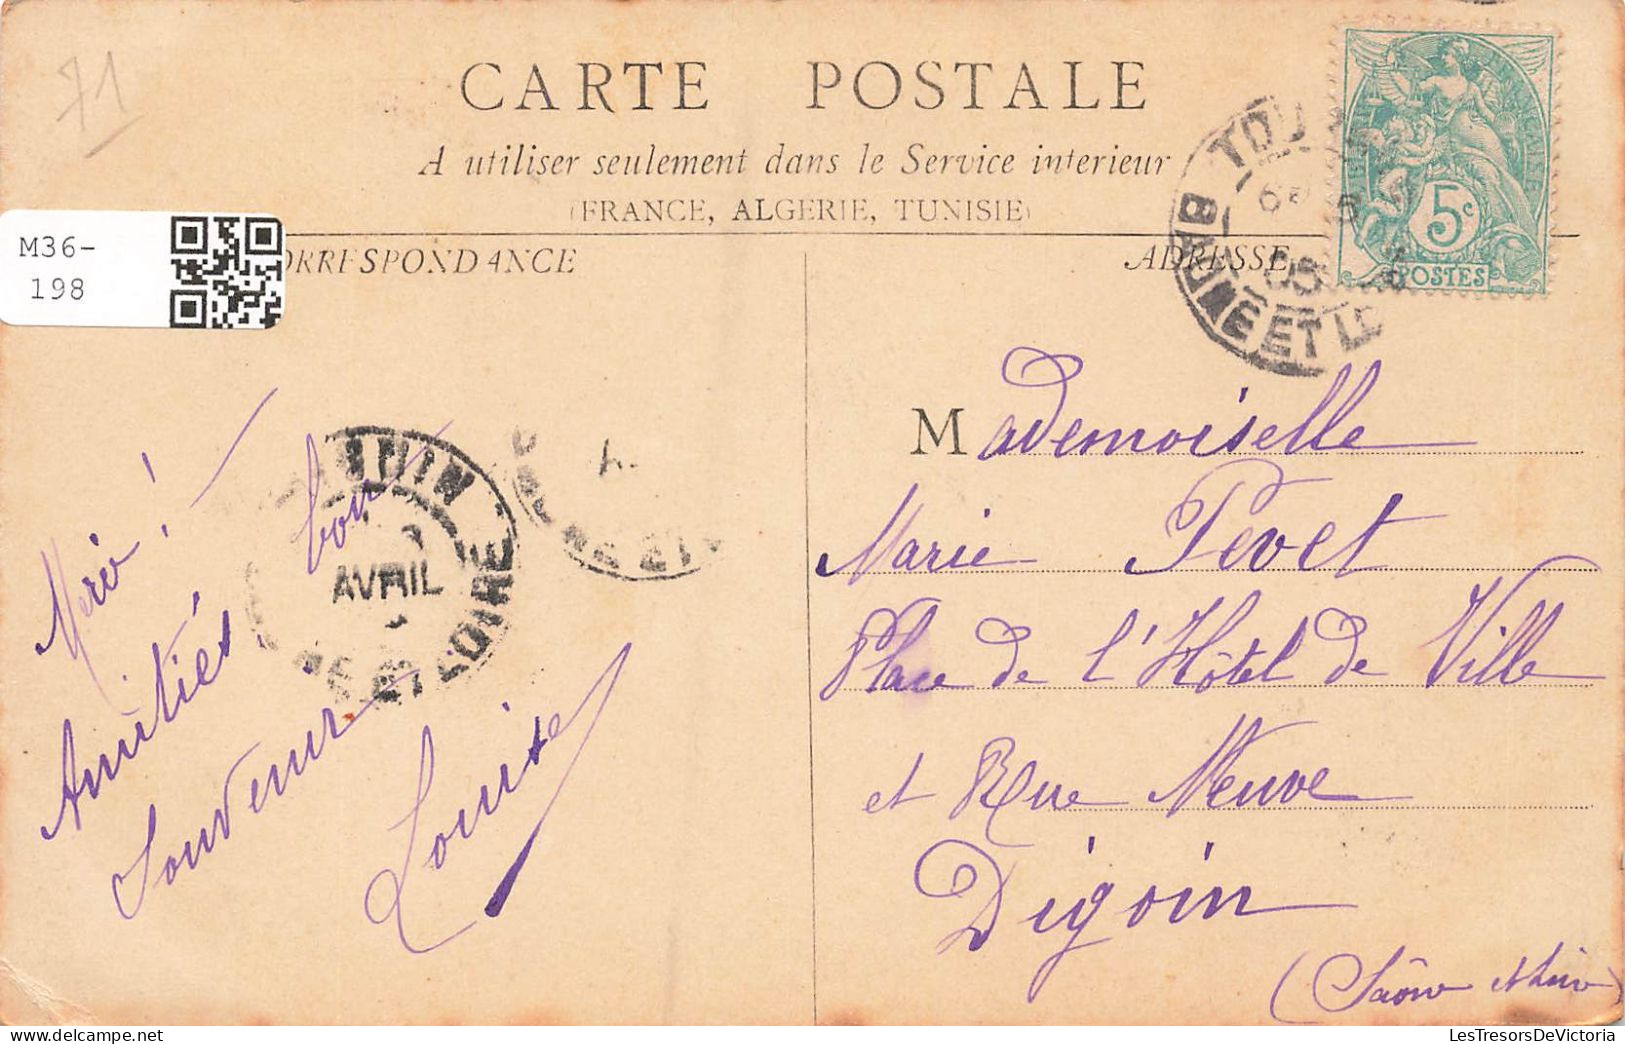 71
CARTE POSTALE
A utiliser seulement dans le Service interieur
(FRANCE, ALGERIE, TUNISIE)
M36-
198
ORRESPONDANCE
ADRESSE
5c
POSTES
TOU
05
BAUME ET LO
Merci!
bon
Amitiés
Souvenir
Louise
AVRIL
ET LOIRE
Mademoiselle
Marie Pevet
Place de l'Hôtel de Ville
et Rue Neuve
Digoin
(Saône et Loire)
LesTresorsDeVictoria